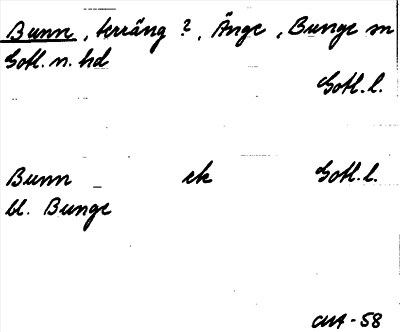 Bunn, terräng ?, Änge, Bunge sn
Gotl. n. hd
Gotl. l.
Bunn ek Gotl. l.
bl. Bunge
-58